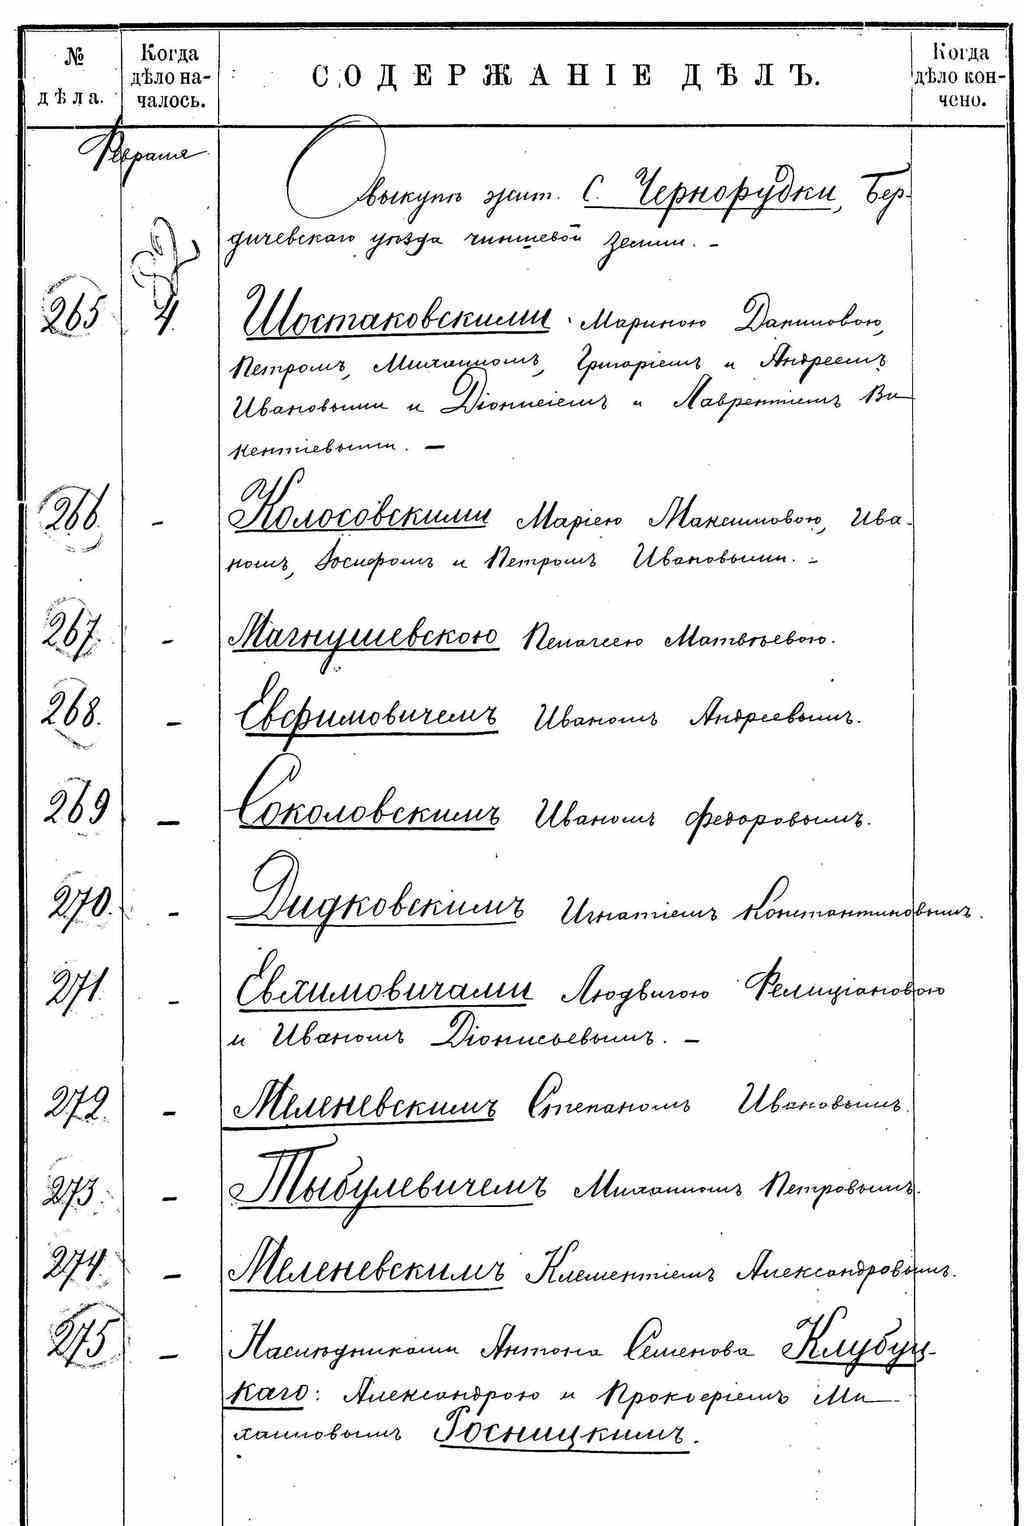 № дѣла.
Когда дѣло на-чалось.
СОДЕРЖАНІЕ ДѢЛЪ.
Когда дѣло кон-чено.
Февраля
О выкупѣ жит. С. Чернорудки, Бер-
дичевскаго уѣзда чиншевой земли. –
265 4 Шостаковскими Мариною Даниловою,
Петромъ, Михаиломъ, Григоріемъ и Андреемъ
Ивановыми и Діонисіемъ и Лаврентіемъ Ви
кентіевыми. –
266. – Колосовскими Маріею Максимовою, Ива-
номъ, Іосифомъ и Петромъ Ивановыми. –
267. – Магнушевскою Пелагеею Матвѣевою.
268. – Евфимовичемъ Иваномъ Андреевымъ.
269 – Соколовскимъ Иваномъ Федоровымъ.
270. – Дидковскимъ Игнатіемъ Константиновымъ.
271. – Евхимовичами Людвигою Фелиціановою
и Иваномъ Діонисьевымъ. –
272. – Меленевскимъ Степаномъ Ивановымъ.
273. – Тыбулевичемъ Михаиломъ Петровымъ.
274. – Меленевскимъ Клементіемъ Александровымъ.
275 – Наслѣдниками Антона Семенова Клубуц-
каго: Александрою и Прокофіемъ Ми-
хаиловымъ Росницкимъ.